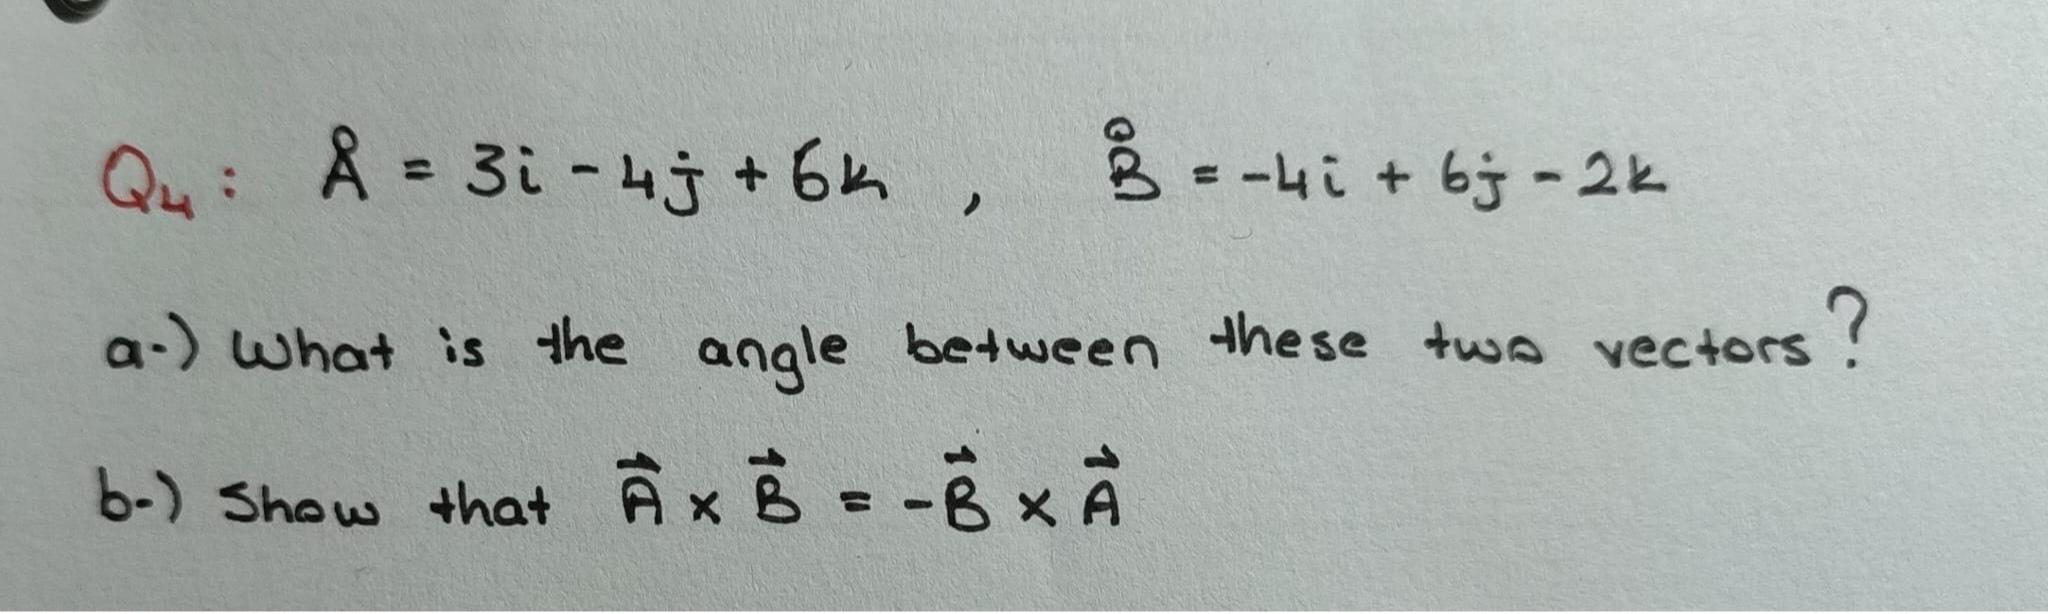 Q4: Å = 3i - 4j + 6k , B̊ = -4i + 6j - 2k
a-) What is the angle between these two vectors?
b-) Show that A⃗ x B⃗ = -B⃗ x A⃗